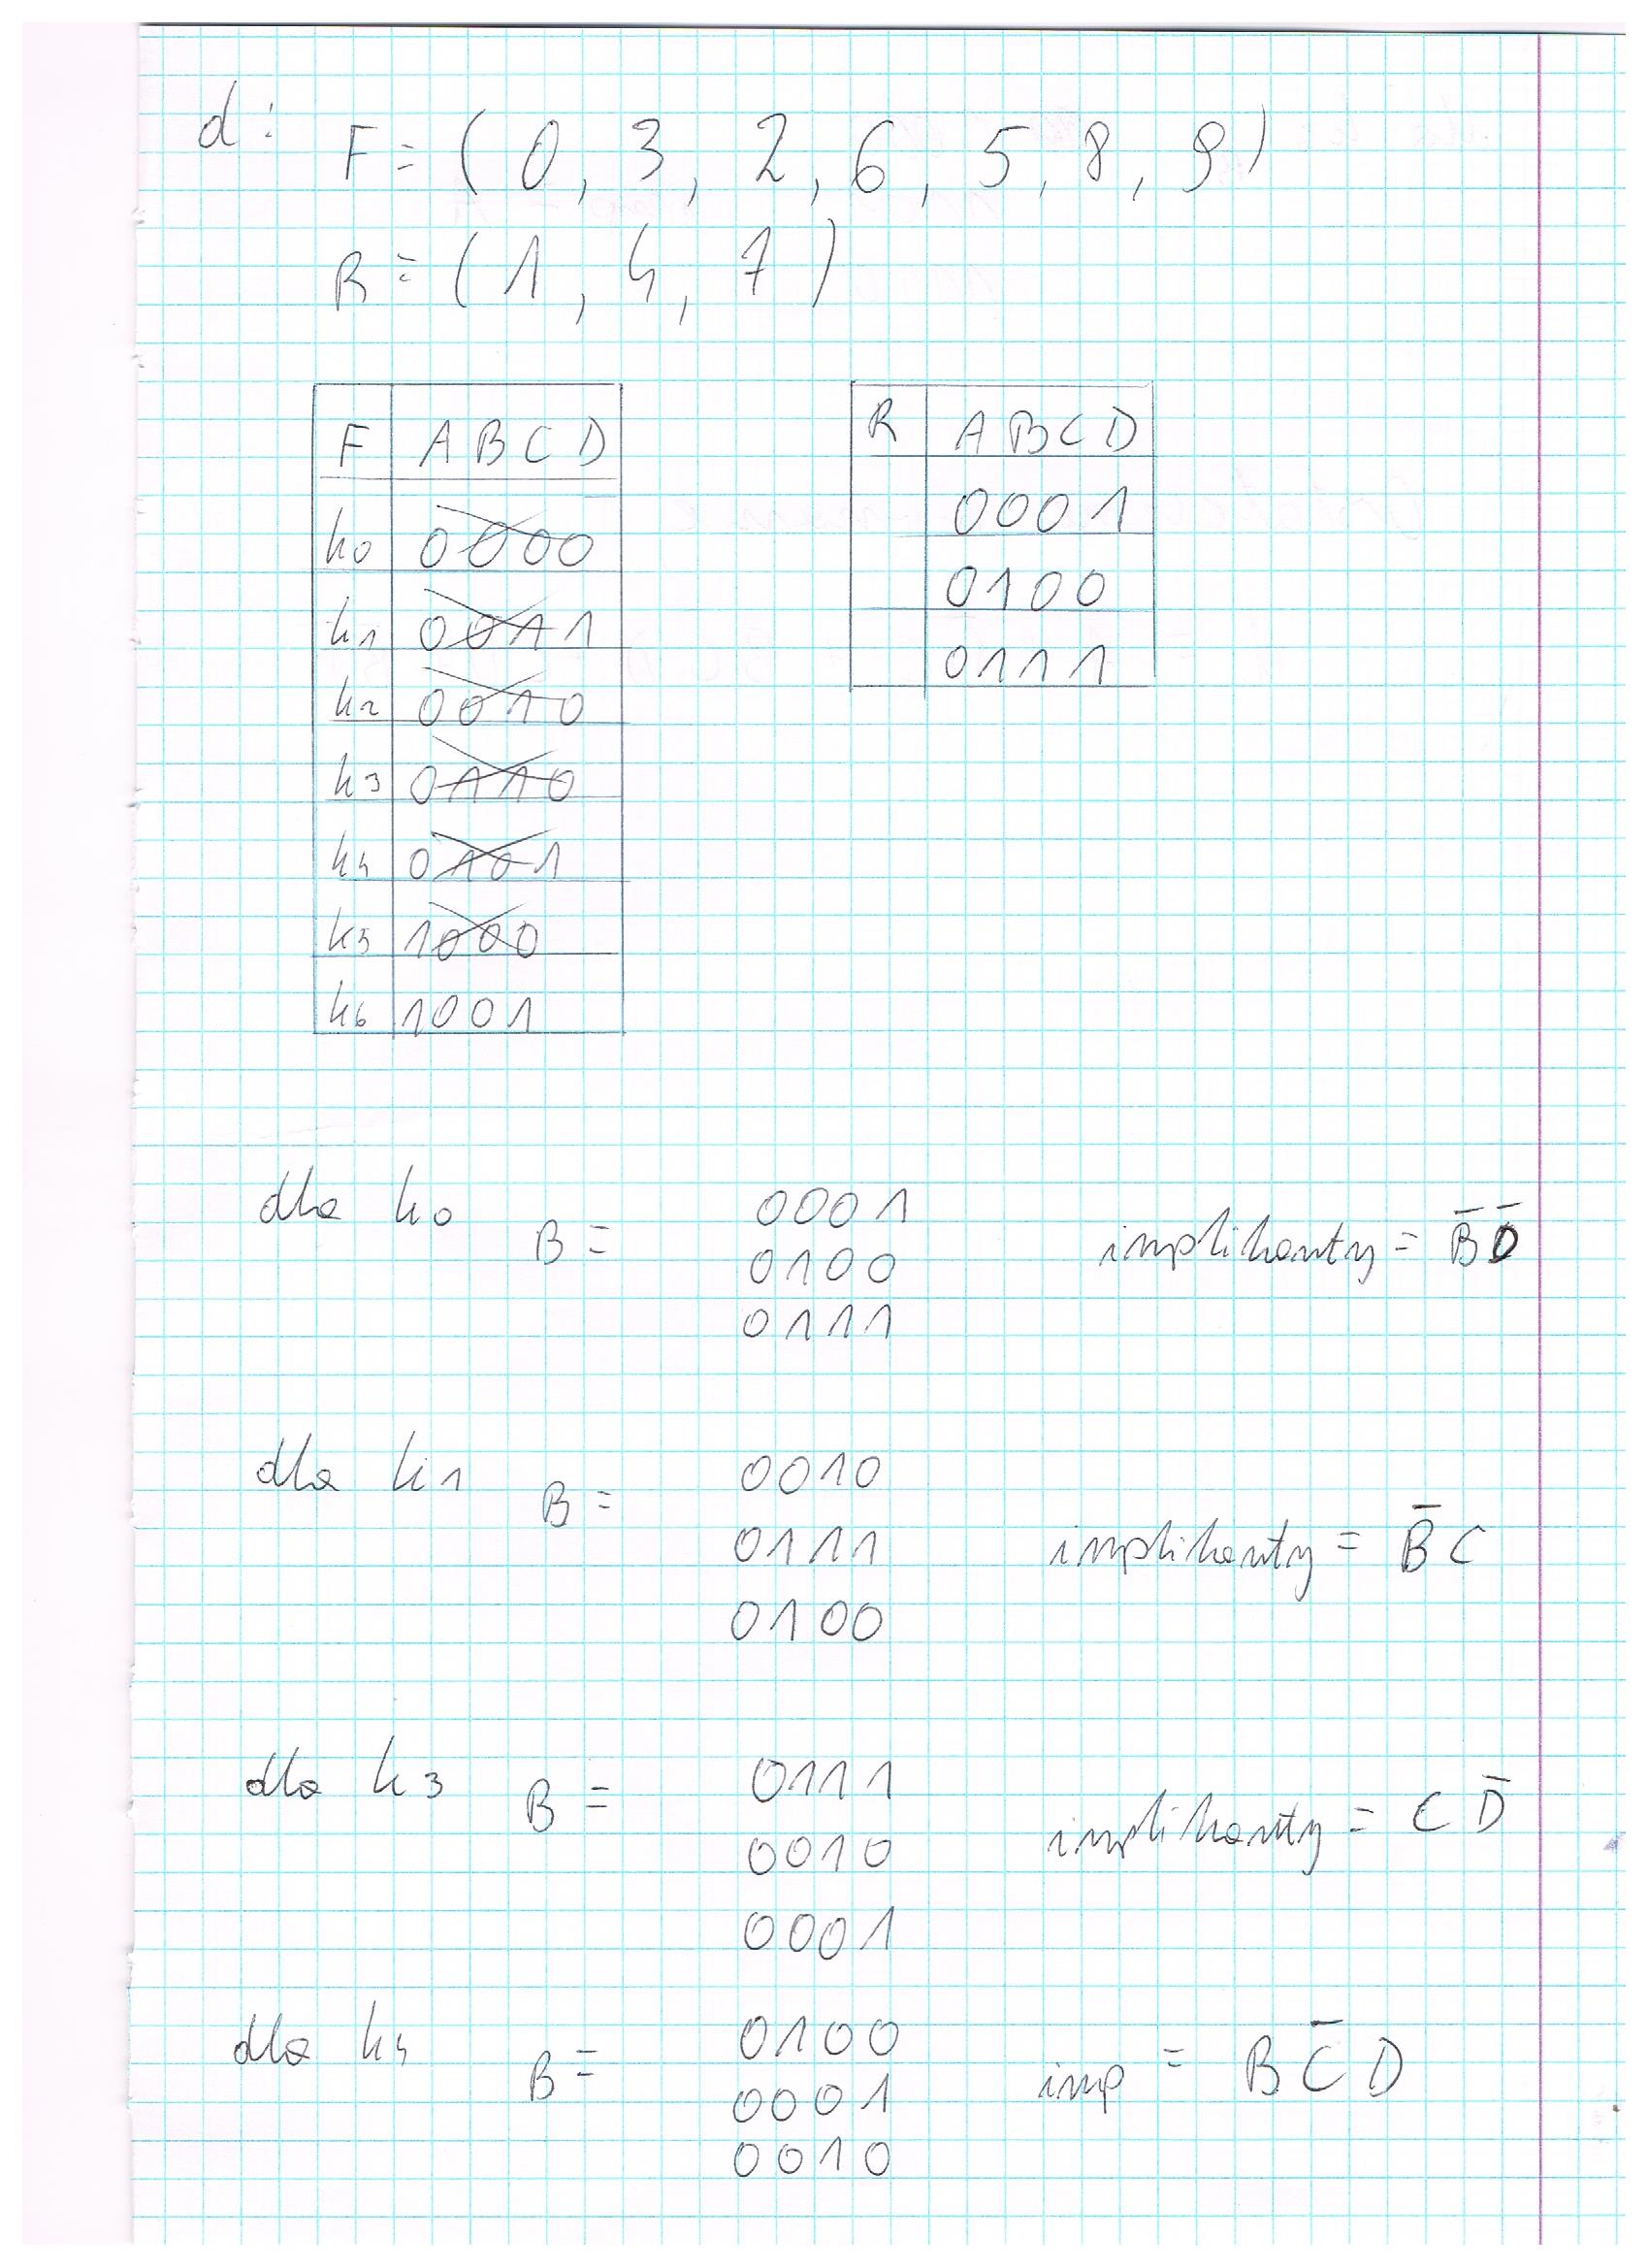 d:
F = (0, 3, 2, 6, 5, 8, 9)
R = (1, 4, 7)
F A B C D
k0 0000
k1 0011
k2 0010
k3 0110
k4 0101
k5 1000
k6 1001
R A B C D
0001
0100
0111
dla k0 B = 0001
0100
0111
implikanty = B̅ D̅
dla k1 B = 0010
0111
0100
implikanty = B̅ C
dla k3 B = 0111
0010
0001
implikanty = C D̅
dla k4 B = 0100
0001
0010
imp = B C̅ D